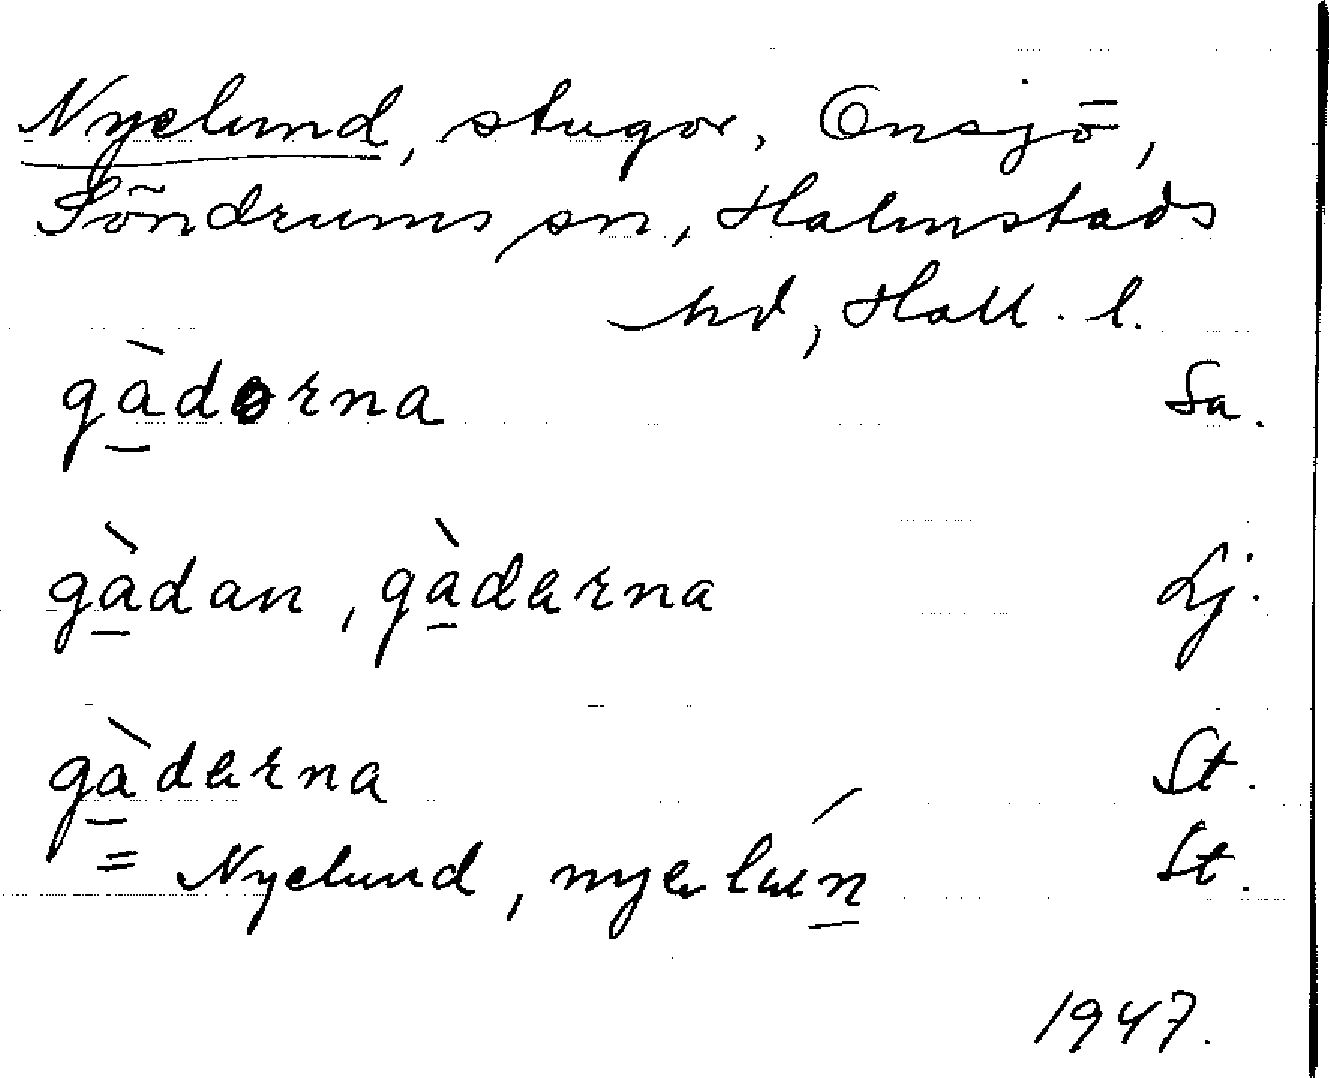 Nyelund, stugor, Onsjö,
Söndrums sn, Halmstads
hd, Hall. l.
gà̱dərna Sa.
gà̱dan, gà̱dərna Lj.
gà̱dərna St.
= Nyelund, nyəlúṉ St.
1947.